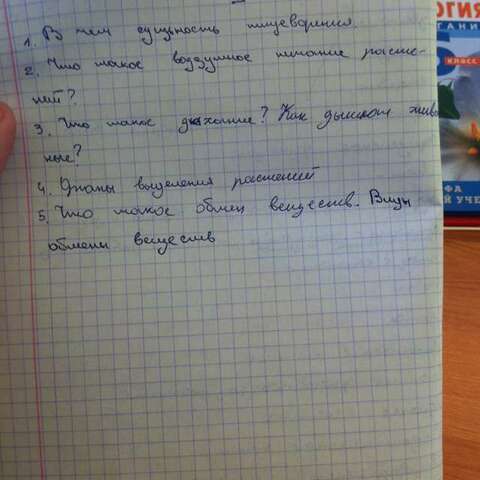 1. В чем сущность пищеварения.
2. Что такое воздушное питание расте-
ний?
3. Что такое дыхание? Как дышат живо
ные?
4. Этапы выделения растений
5. Что такое обмен веществ. Виды
обмены веществ
ОГИЯ
ГАНИ
6
КЛАСС
ФА
Й УЧЕ